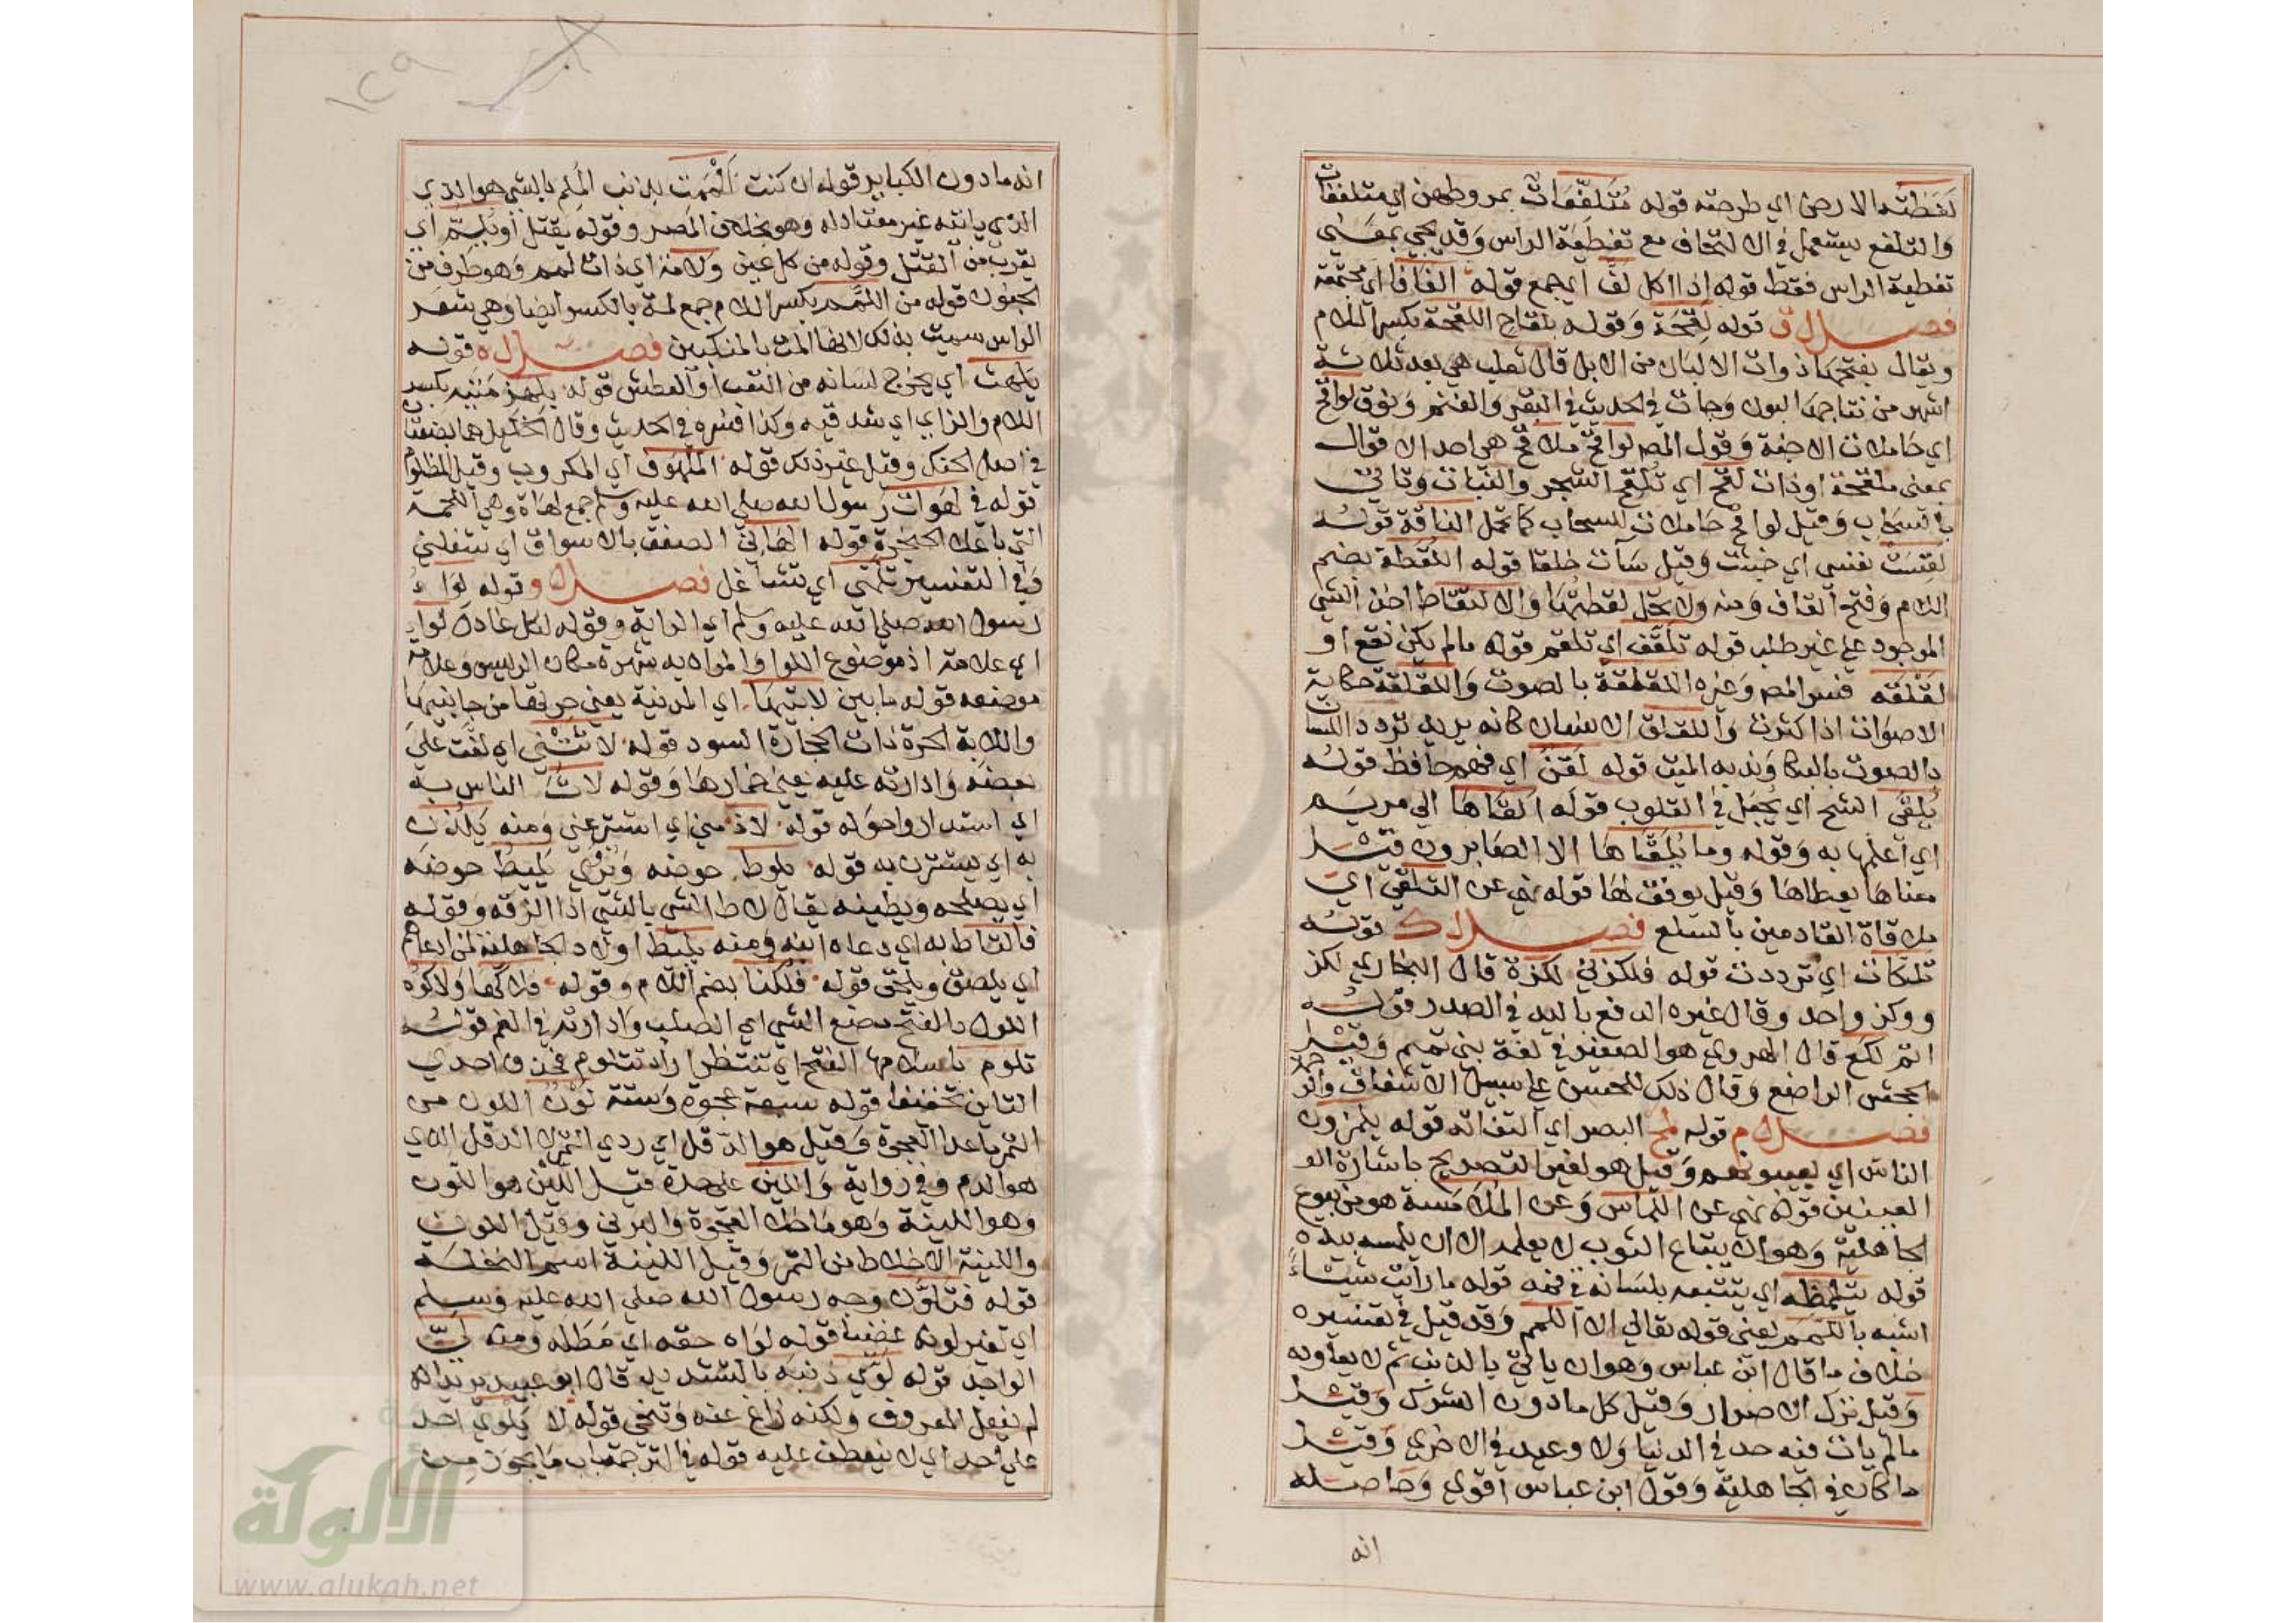 لفظته الارض اي طرحته قوله متلفعات بمروطهن اي متلففات
والتلفع يستعمل في الالتحاف مع تغطية الراس وقد يجي بمعنى
تغطية الراس فقط قوله اذا اكل لف اي جمع قوله الفافا اي مجتمعة
فصل ق قوله لقحة وقوله بلقاح اللقحة بكسر اللام
ويقال بفتحها ذوات الالبان من الابل قال ثعلب هي بعد ثلاثة
اشهر من نتاجها لبون وجات في الحديث في البقر والغنم ونوق لواقح
اي حاملات الاجنة وقول المص لواقح ملاقح هي احد الاقوال
بمعنى ملقحة او ذات لقح اي تلقح الشجر والنبات وتاتي
بالسحاب وقيل لواقح حاملات للسحاب كما تحمل الناقة قوله
لقست نفسي اي خبثت وقيل سآت خلقا قوله اللقطة بضم
اللام وفتح القاف ومنه ولا تحل لقطتها والالتقاط اخذ الشي
الموجود على غير طلب قوله تلقف اي تلقم قوله مالم يكن نقع او
لقلقه فسر المص وغيره اللقلقة بالصوت واللقلقة حكاية
الاصوات اذا كثرت واللقلق الانسان كانه يريد تردد اللسان
بالصوت بالبكا وندبه الميت قوله لقن اي فهم حافظ قوله
يلقى الشح اي يجعل في القلوب قوله القاها الي مريم
اي اعلمها به وقوله وما يلقاها الا الصابرون قيل
معناها يعطاها وقيل يوفق لها قوله نهي عن التلقي اي
ملاقاة القادمين بالسلع فصل ك قوله
تلكات اي ترددت قوله فلكزني لكزة قال البخاري لكز
ووكز واحد وقال غيره الدفع باليد في الصدر قوله
اثم لكع قال الهروي هو الصغير في لغة بني تميم وقيل
الجحش الراضع وقال ذلك للحسن على سبيل الاشفاق والرحمة
فصل م قوله لمح البصر اي التفاته قوله يلمزون
الناس اي يعيبونهم وقيل هو لغير التصريح باشارة او
العينين قوله نهي عن اللماس وعن الملامسة هو من بيوع
الجاهلية وهو ان يبتاع الثوب لا يعلمه الا ان يلمسه بيده
قوله يتلمظه اي يتتبعه بلسانه في فمه قوله ما رايت شياء
اشبه باللمم يعني قوله تعالي الا اللمم وقد قيل في تفسيره
خلاف ما قال ابن عباس وهو ان ياتي بالذنب ثم لا يعاوده
وقيل نزل الاصرار وقيل كل ما دون الشرك وقيل
مالم يات فيه حد في الدنيا ولا وعيد في الاخري وقيل
ما كان في الجاهلية وقول ابن عباس اقوي وحاصله
انه
١٢٩
انه ما دون الكباير قوله ان كنت الممت بذنب الملم بالشي هو الذي
الذي ياتيه غير معتاد له وهو بخلاف المصر وقوله يقتل او يلم اي
يقرب من القتل وقوله من كل عين ولامة اي ذات لمم وهو طرف من
الجنون قوله من اللمم بكسر اللام جمع لمة بالكسر ايضا وهي شعر
الراس سميت بذلك لانها المت بالمنكبين فصل ه قوله
يلهث اي يخرج لسانه من التعب او العطش قوله بلهزمتيه بكسر
اللام والزاي اي شدقيه وكذا فسره في الحديث وقال الخليل هما مضغتان
في اصل الحنك وقيل غير ذلك قوله الملهوف اي المكروب وقيل المظلوم
قوله في لهوات رسول الله صلي الله عليه وسلم جمع لهاة وهي اللحمة
التي باعلا الحنجرة قوله الهاني الصفق بالاسواق اي شغلني
وفي التفسير تلهى اي تتشاغل فصل و قوله لواء
رسول الله صلي الله عليه وسلم اي الراية وقوله لكل غادر لواء
اي علامة اذ موضوع اللوا والمراد به شهرة مكان الرئيس وعلامة
موضعه قوله ما بين لابتيها اي المدنية يعني حرتيها من جانبيها
واللابة الحرة ذات الحجارة السود قوله لاثتني اي لفت علي
بعضه وادارته عليه يعني خمارها وقوله لاث الناس به
اي استداروا حوله قوله لاذ مني اي استتر عني ومنه يلذن
به اي يستترن به قوله يلوط حوضه ويروي يليط حوضه
اي يصلحه ويطينه يقال لاط الشي بالشي اذا الزقه وقوله
فالتاط به اي دعاه ابنه ومنه يليط اولاد الجاهلية لمن ادعاهم
اي يلصق ويلحق قوله فلكنا بضم اللام وقوله فلاكها ولاكوه
اللوك بالفتح مضغ الشي اي الصلب وادارته في الفم قوله
تلوم باسلامها الفتح اي تنتظر اراد تتلوم فحذف احدي
التاين تخفيفا قوله سبعة عجوة وستة لون اللون من
التمر ما عدا العجوة وقيل هو الدقل اي ردي التمر لا الدقل الذي
هو الدم وفي رواية واللين على حدة قيل اللين هو اللون
وهو اللينة وهو ما خلا العجوة والبرني وقيل اللون
واللينة الاخلاط من التمر وقيل اللينة اسم النخلة
قوله فتلون وجه رسول الله صلي الله عليه وسلم
اي تغير لونه غضبا قوله لواه حقه اي مطله ومنه لي
الواجد قوله لوي ذنبه بالتشديد قال ابو عبيد يريد انه
لم يفعل المعروف ولكنه زاغ عنه وتنحى قوله لا يلوي احد
علي احد اي لا ينعطف عليه قوله في الترجمة باب ما يجوز من
الألوكة
www.alukah.net